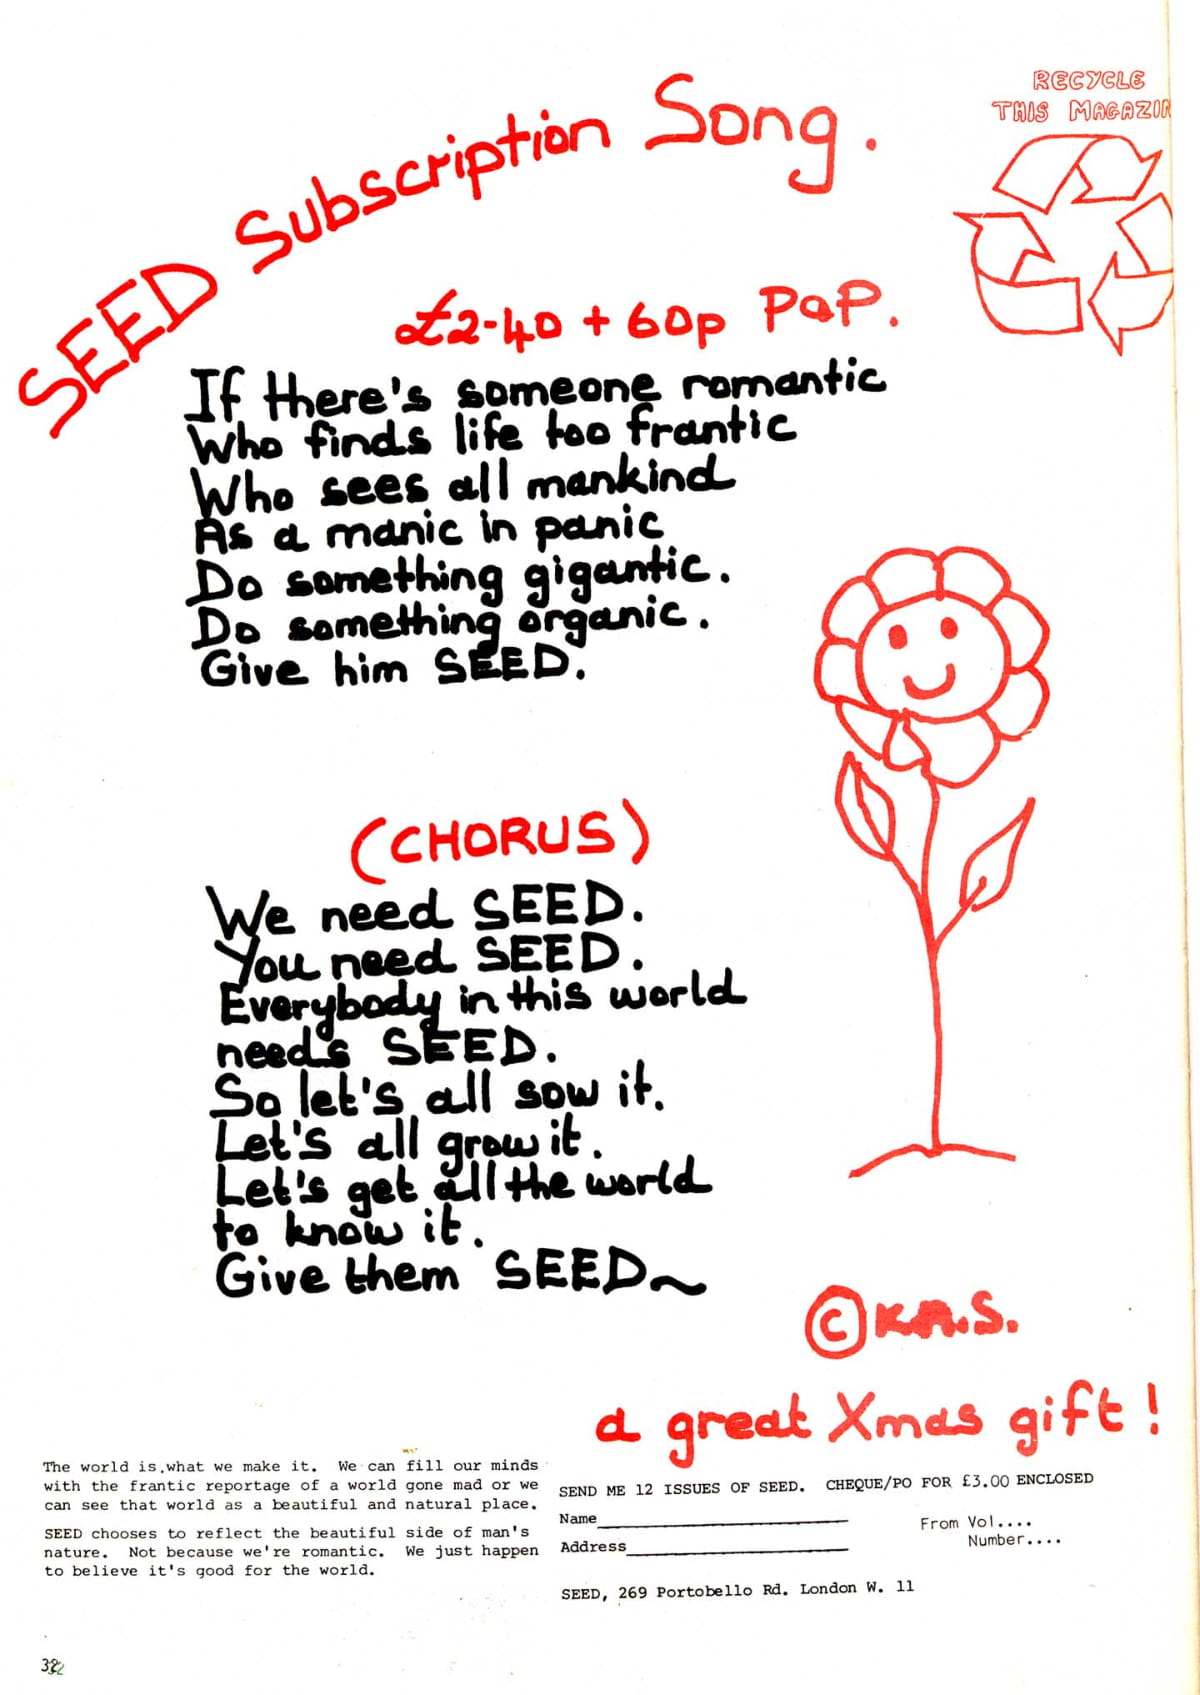 SEED Subscription Song.
RECYCLE
THIS MAGAZIN
£2-40 + 60p P&P.
If there's someone romantic
Who finds life too frantic
Who sees all mankind
As a manic in panic
Do something gigantic.
Do something organic.
Give him SEED.
(CHORUS)
We need SEED.
You need SEED.
Everybody in this world
needs SEED.
So let's all sow it.
Let's all grow it.
Let's get all the world
to know it.
Give them SEED~
© K.A.S.
a great Xmas gift!
The world is what we make it. We can fill our minds
with the frantic reportage of a world gone mad or we
can see that world as a beautiful and natural place.
SEED chooses to reflect the beautiful side of man's
nature. Not because we're romantic. We just happen
to believe it's good for the world.
SEND ME 12 ISSUES OF SEED. CHEQUE/PO FOR £3.00 ENCLOSED
Name
From Vol....
Address
Number....
SEED, 269 Portobello Rd. London W. 11
32